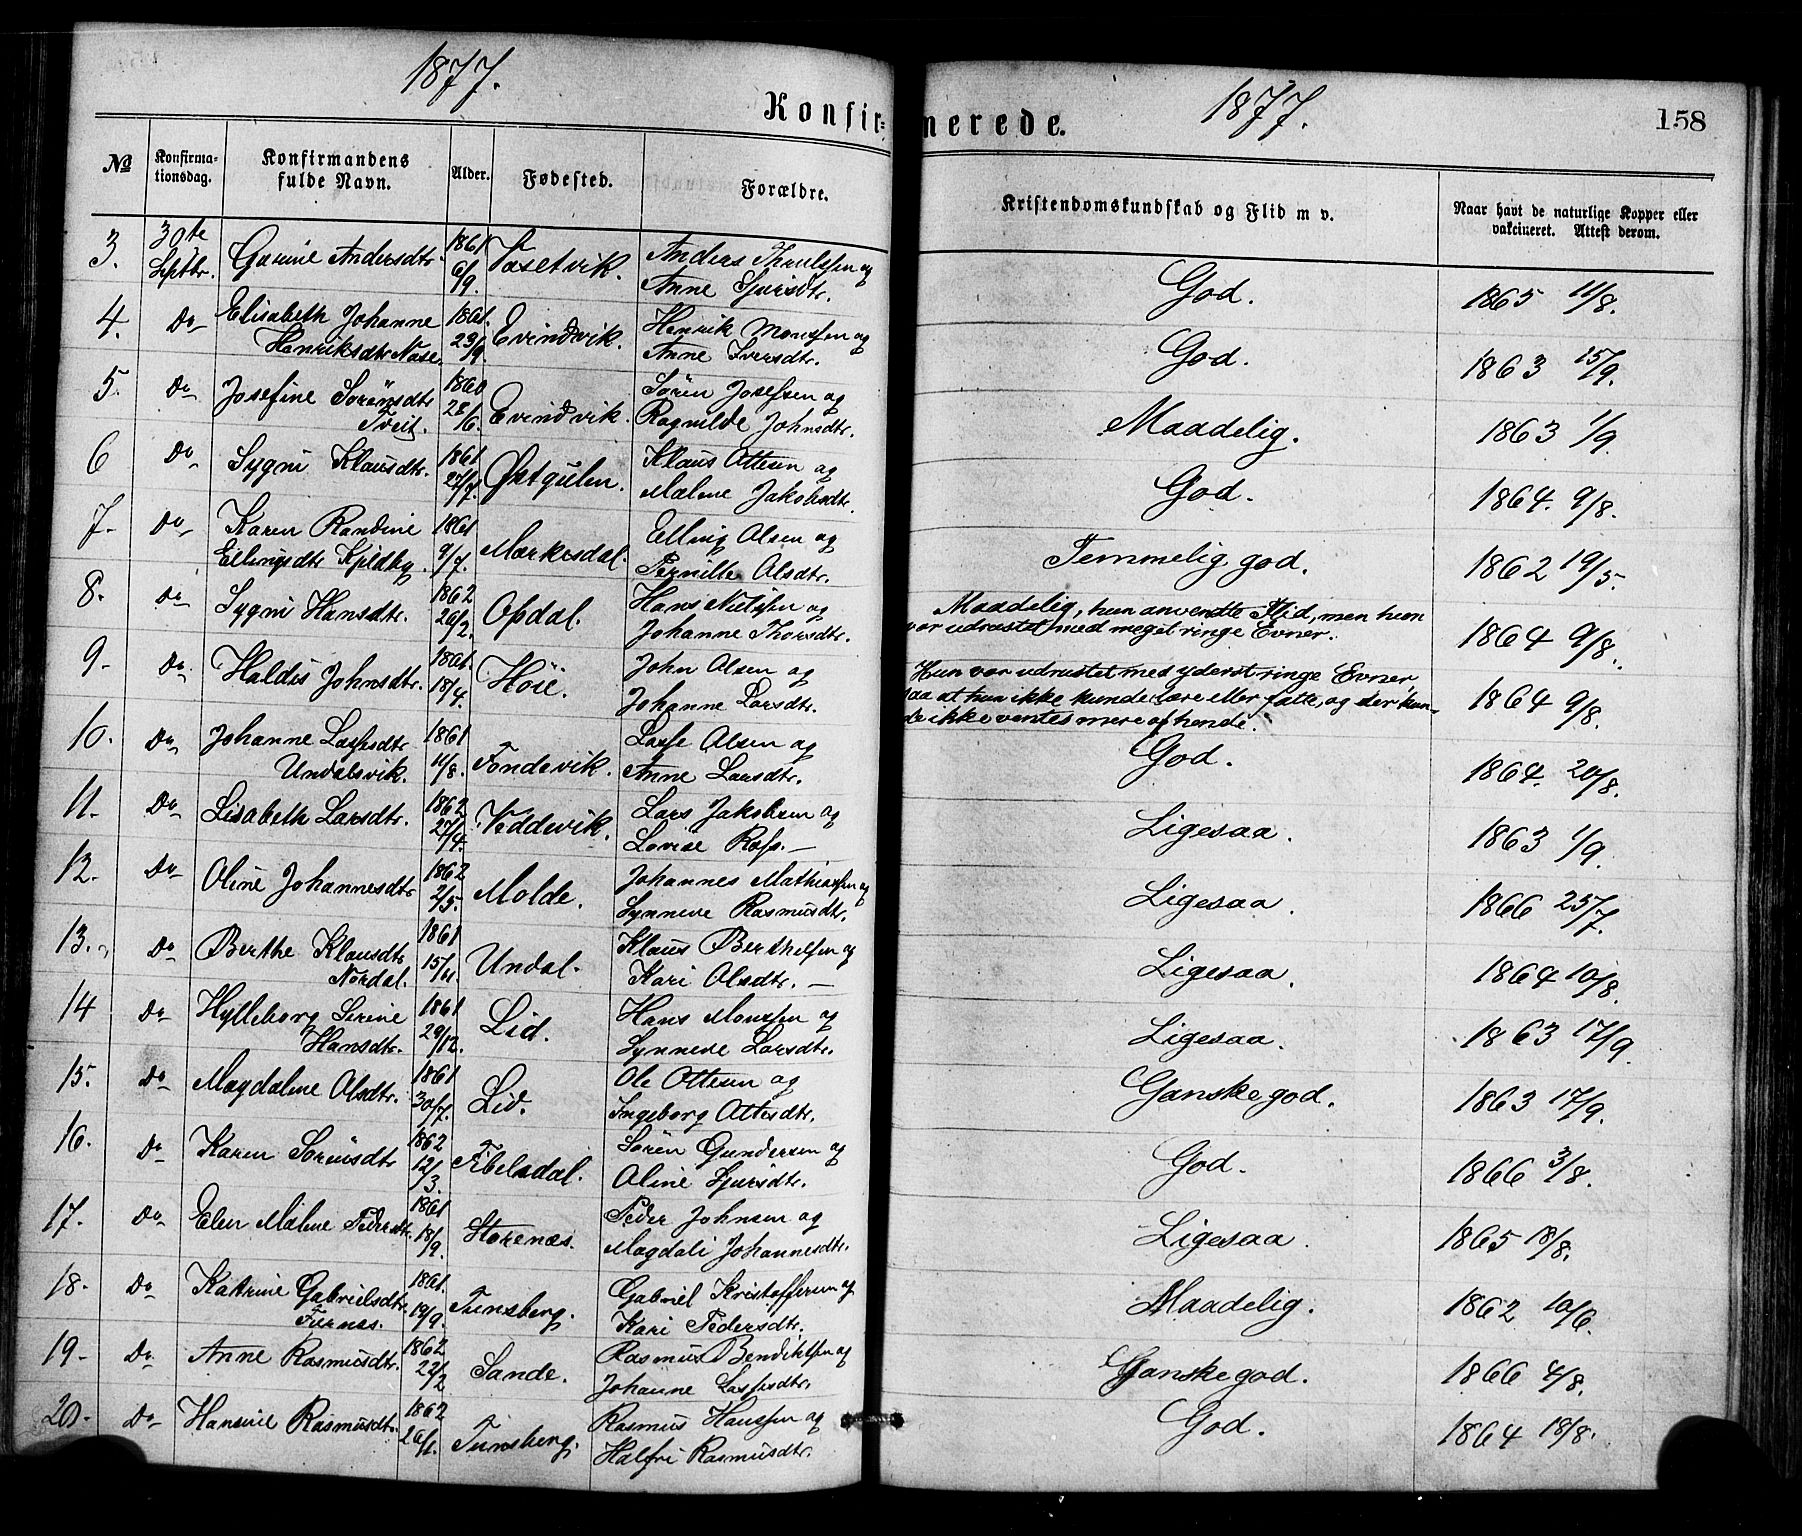 1877. 1877.
Konfirmerede. 158
№ Konfirmationsdag. Konfirmandens fulde Navn. Alder. Fødested. Forældre. Kristendomskundskab og Flid m v. Naar havt de naturlige Kopper eller vakcineret. Attest derom.
3. 30te 1861 Anders
Septbr. Andersdtr. 6/9. Vasetvik. og Anne Sjursdtr. God. 1865 11/8.
4. Do Elisabeth Johanne 1861. Evindvik. Henrik Monssen og God. 1863 15/9.
Henriksdtr Nase. 23/9 Anne Iversdtr.
5. Do Josefine Sørensdtr 1860 Sören Josefsen og
Tveit. 28/6. Evindvik. Ragnilde Johnsdtr. Maadelig. 1863 1/9.
6 Do Sygni Klausdtr. 1861 27/7. Østgulen. Klaus Ottesen og
Malene Jakobsdtr. God. 1864. 9/8.
7. Do Karen Randine 1861 Mærkesdal. Elling Olsen og
Ellingsdtr 9/7. Pernille Olsdtr. Temmelig god. 1862 19/5.
8. Do Sygni Hansdtr. 1862 26/2. Opdal. Hans Nielssen og Maadelig, hun anvendte Flid, men hun
Johanne Thorsdtr. var udrustet med meget ringe Evner. 1864 9/8.
9. Do Haldis Johnsdtr. 1861. 18/4. Höie. John Olsen og Hun var udrustet med yderst ringe Evner,
Johanne Larsdtr. saa at hun ikke kunde lære eller fatte, og der kun- 1864 9/8.
de ikke ventes mere af hende.
10. Do Johanne Lassesdtr 1861 Lasse Olsen og God.
Undalsvik. 11/8. Tondevik. Anne Larsdtr. 1864. 20/8.
11. Do Lisabeth Larsdtr. 1862 27/4. Veddevik. Lars Jakobsen og Ligesaa. 1863 1/9.
Lovise Rass. —
12. Do Oline Johannesdtr 1862 2/5. Molde. Johannes Mathiassen og Ligesaa. 1866 25/7.
Synneve Rasmusdtr.
13. Do Berthe Klausdtr 1861 Undal. Klaus Berthelsen og Ligesaa. 1864 10/8.
Nordal. 15/11 Kari Olsdtr. —
14 Do Hylleborg Serine 1861 Lid. Hans Monssen og Ligesaa. 1863 17/9.
Hansdtr. 29/12. Synneve Larsdtr.
15. Do Magdalene Olsdtr. 1861 30/7. Lid. Ole Ottesen og Ganske god. 1863 17/9.
Ingeborg Ottesdtr.
16. Do Karen Sørensdtr 1862 12/3. Tibelsdal. Sören Gundersen og God. 1866 3/8.
Oline Sjursdtr.
17. Do Elen Malene Pedersdtr. 1861 18/9. Storenæs. Peder Johnsen og Ligesaa. 1865 18/8.
Magdali Johannesdtr.
18. Do Katrine Gabrielsdtr 1861. Tunsberg. Gabriel Kristoffersen og Maadelig. 1862 10/6.
Furnes. 19/9. Kari Pedersdtr.
19. Do Anne Rasmusdtr. 1862 22/2 Sande. Rasmus Bendiktsen og Ganske god. 1866 4/8.
Johanne Lassesdtr.
20. Do Hansine Rasmusdtr. 1862 26/1. Tunsberg. Rasmus Hanssen og God. 1864 18/8.
Halfri Rasmusdtr.